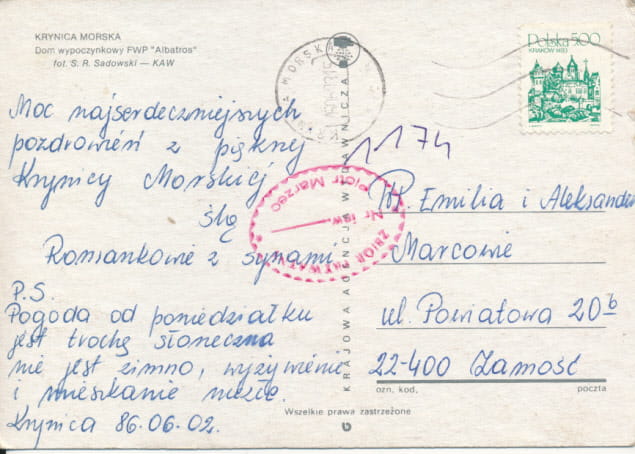 KRYNICA MORSKA
Dom wypoczynkowy FWP "Albatros"
fot. S. R. Sadowski — KAW
Moc najserdeczniejszych
pozdrowień z pięknej
Krynicy Morskiej
ślą
Romankowie z synami
P.S.
Pogoda od poniedziałku
jest trochę słoneczna
nie jest zimno, wyżywienie
i mieszkanie niezłe.
Krynica 86.06.02.
KRAJOWA AGENCJA WYDAWNICZA
Polska 5,00
KRAKÓW 1493
1174
ZBIÓR PRYWATNY
Nr inw.
Piotr Marzec
Emilia i Aleksander
Marcowie
ul. Powiatowa 20b
22-400 Zamość
ozn. kod, poczta
Wszelkie prawa zastrzeżone